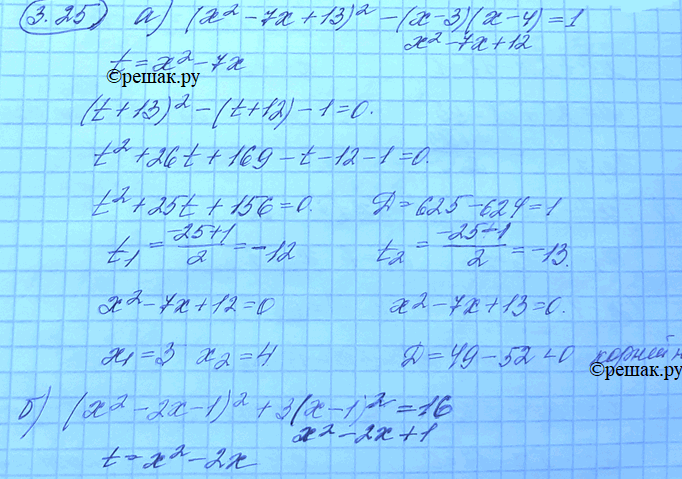 3.25) а) (x² - 7x + 13)² - (x-3)(x-4) = 1
x² - 7x + 12
t = x² - 7x
©решак.ру
(t+13)² - (t+12) - 1 = 0.
t² + 26t + 169 - t - 12 - 1 = 0.
t² + 25t + 156 = 0. D = 625 - 624 = 1
t₁ = (-25+1)/2 = -12 t₂ = (-25-1)/2 = -13.
x² - 7x + 12 = 0 x² - 7x + 13 = 0.
x₁ = 3 x₂ = 4 D = 49 - 52 < 0 корней н
©решак.ру
б) (x² - 2x - 1)² + 3(x-1)² = 16
x² - 2x + 1
t = x² - 2x
©решак.ру